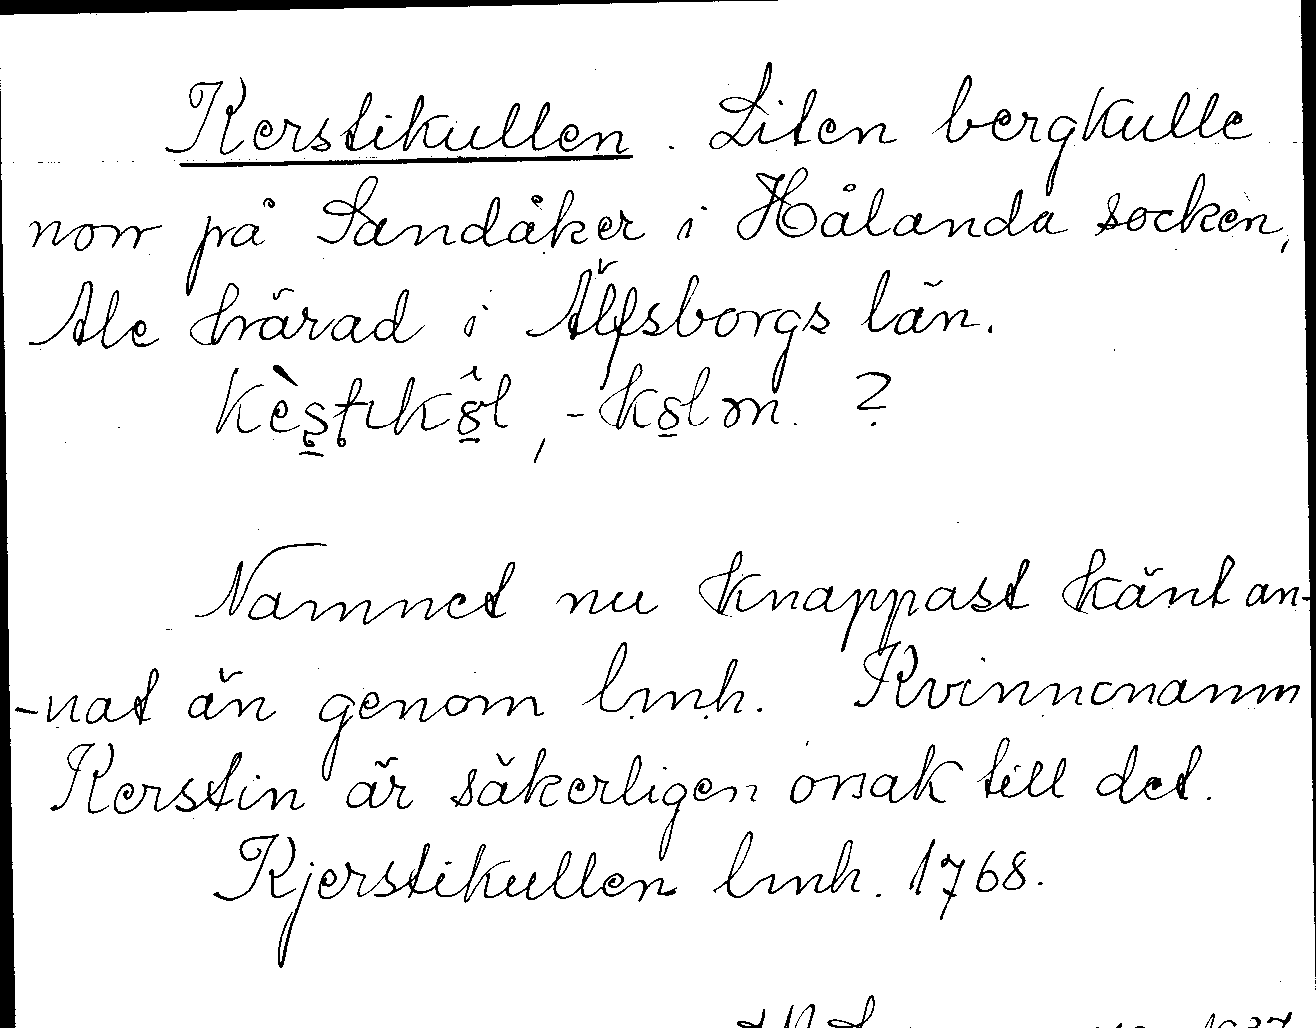 Kerstikullen. Liten bergkulle
norr på Sandåker i Hålanda socken,
Ale härad i Älfsborgs län.
?
Namnet nu knappast känt an-
-nat än genom lmh. Kvinnonamn
Kerstin är säkerligen orsak till det.
Kjerstikullen lmh. 1768.
1937